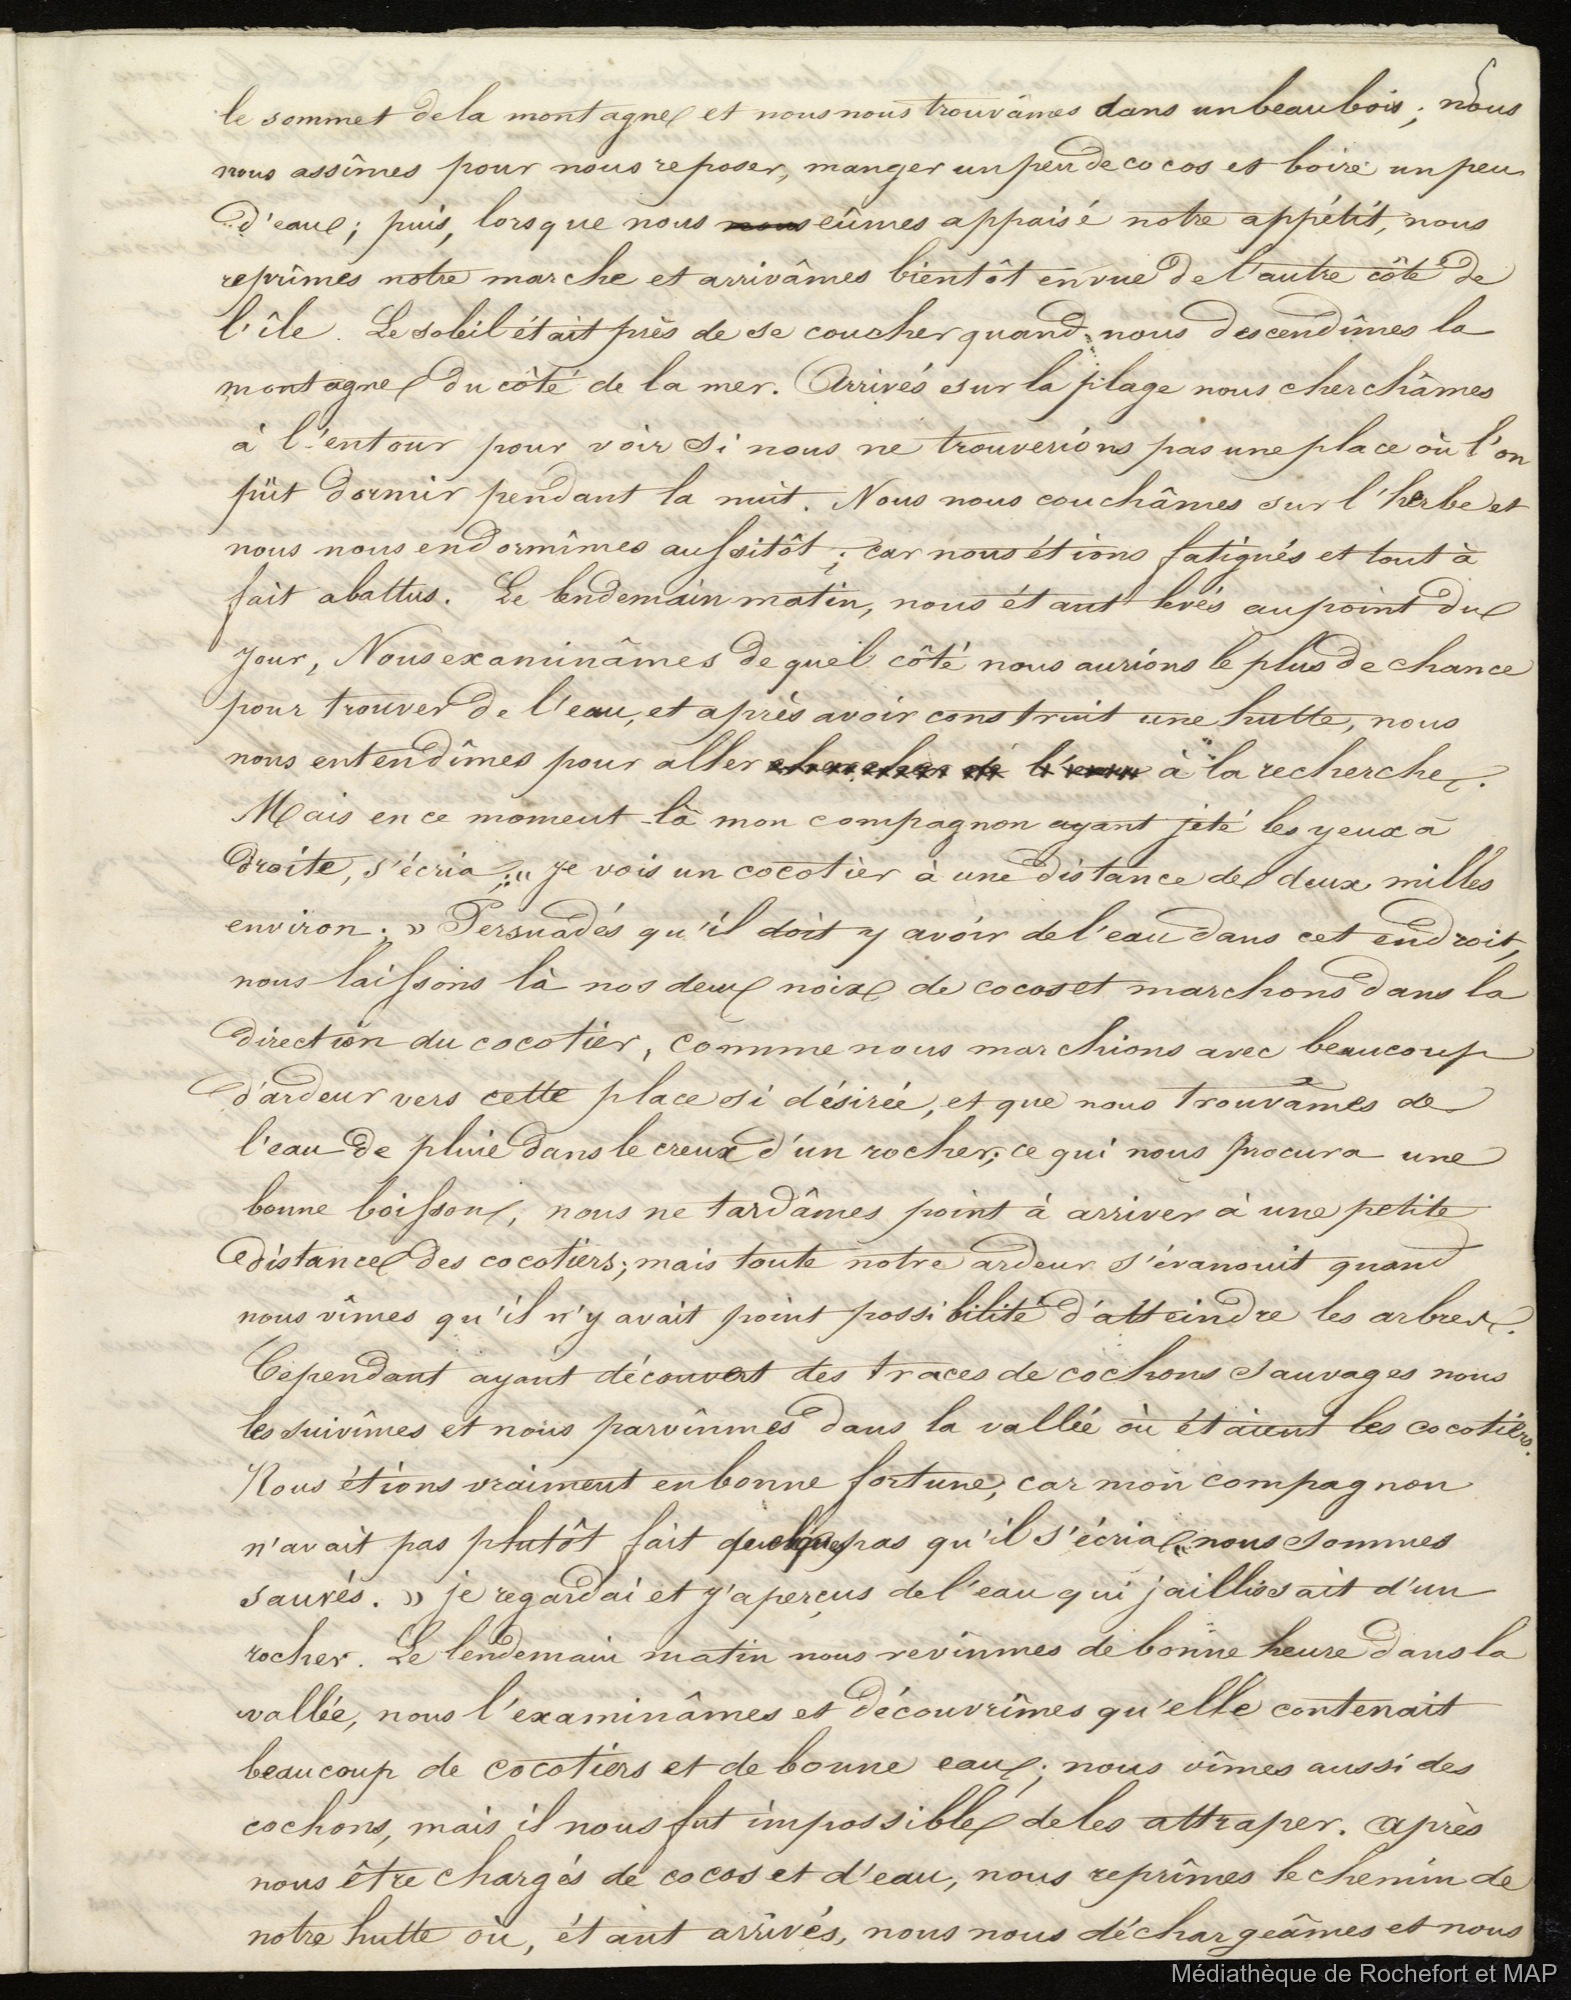 le sommet de la montagne et nous nous trouvâmes dans un beau bois ; nous
nous assîmes pour nous reposer, manger un peu de cocos et boire un peu
d'eau ; puis, lorsque nous nous eûmes appaisé notre appétit, nous
reprîmes notre marche et arrivâmes bientôt en vue de l'autre côté de
l'île. Le soleil était près de se coucher quand nous descendîmes la
montagne du côté de la mer. Arrivés sur la plage nous cherchâmes
à l'entour pour voir si nous ne trouverions pas une place où l'on
pût dormir pendant la nuit. Nous nous couchâmes sur l'herbe et
nous nous endormîmes aussitôt ; car nous étions fatigués et tout à
fait abattus. Le lendemain matin, nous étant levés au point du
jour, Nous examinâmes de quel côté nous aurions le plus de chance
pour trouver de l'eau, et après avoir construit une hutte, nous
nous entendîmes pour aller chercher de l'eau à la recherche.
Mais en ce moment-là mon compagnon ayant jeté les yeux à
droite, s'écria : " Je vois un cocotier à une distance de deux milles
environ. » Persuadés qu'il doit y avoir de l'eau dans cet endroit,
nous laissons là nos deux noix de cocos et marchons dans la
direction du cocotier, comme nous marchions avec beaucoup
d'ardeur vers cette place si désirée, et que nous trouvâmes de
l'eau de pluie dans le creux d'un rocher, ce qui nous procura une
bonne boisson, nous ne tardâmes point à arriver à une petite
distance des cocotiers ; mais toute notre ardeur s'évanouit quand
nous vîmes qu'il n'y avait point possibilité d'atteindre les arbres.
Cependant ayant découvert des traces de cochons sauvages nous
les suivîmes et nous parvînmes dans la vallée où étaient les cocotiers.
Nous étions vraiment en bonne fortune, car mon compagnon
n'avait pas plutôt fait quelques pas qu'il s'écria " nous sommes
sauvés. » je regardai et j'aperçus de l'eau qui jaillissait d'un
rocher. Le lendemain matin nous revînmes de bonne heure dans la
vallée, nous l'examinâmes et découvrîmes qu'elle contenait
beaucoup de cocotiers et de bonne eau ; nous vîmes aussi des
cochons, mais il nous fut impossible de les attraper. Après
nous être chargés de cocos et d'eau, nous reprîmes le chemin de
notre hutte où, étant arrivés, nous nous déchargeâmes et nous
Médiathèque de Rochefort et MAP